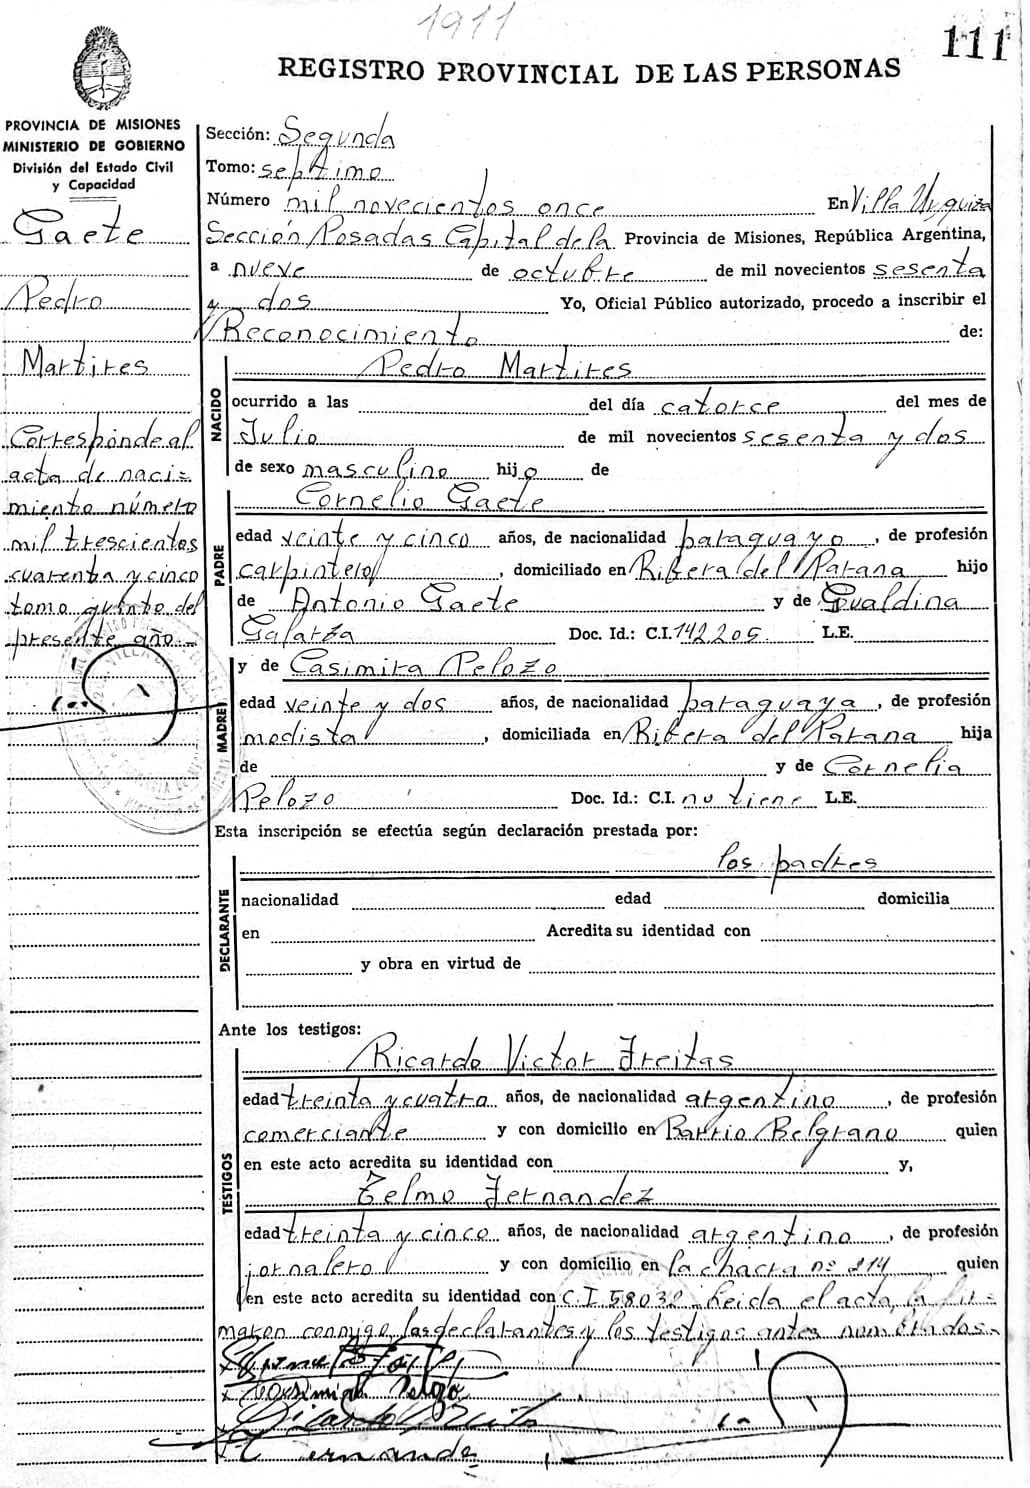 1911
111
REGISTRO PROVINCIAL DE LAS PERSONAS
PROVINCIA DE MISIONES
MINISTERIO DE GOBIERNO
División del Estado Civil
y Capacidad
Gaete
Pedro
Martires
Corresponde al
acta de naci=
miento número
mil trescientos
cuarenta y cinco
tomo quinto del
presente año.-
Sección: Segunda
Tomo: septimo
Número mil novecientos once En Villa Urquiza
Sección Posadas Capital de la Provincia de Misiones, República Argentina,
a nueve de octubre de mil novecientos sesenta
y dos Yo, Oficial Público autorizado, procedo a inscribir el
Reconocimiento de:
NACIDO
Pedro Martires
ocurrido a las del día catorce del mes de
Julio de mil novecientos sesenta y dos
de sexo masculino hijo de
Cornelio Gaete
PADRE
edad veinte y cinco años, de nacionalidad paraguayo, de profesión
carpintero, domiciliado en Ribera del Parana hijo
de Antonio Gaete y de Gualdina
Galarza Doc. Id.: C.I. 142205. L.E.
y de Casimira Pelozo
MADRE
edad veinte y dos años, de nacionalidad paraguaya, de profesión
modista, domiciliada en Ribera del Parana hija
de y de Cornelia
Pelozo Doc. Id.: C.I. no tiene L.E.
Esta inscripción se efectúa según declaración prestada por:
los padres
DECLARANTE
nacionalidad edad domicilia
en Acredita su identidad con
y obra en virtud de
Ante los testigos:
TESTIGOS
Ricardo Victor Freitas
edad treinta y cuatro años, de nacionalidad argentino, de profesión
comerciante y con domicilio en Barrio Belgrano quien
en este acto acredita su identidad con y,
Telmo Fernandez
edad treinta y cinco años, de nacionalidad argentino, de profesión
jornalero y con domicilio en la chacra nº 214 quien
en este acto acredita su identidad con C.I. 58032 Leida el acta, la fir=
maron conmigo, los declarantes y los testigos antes nombrados.-